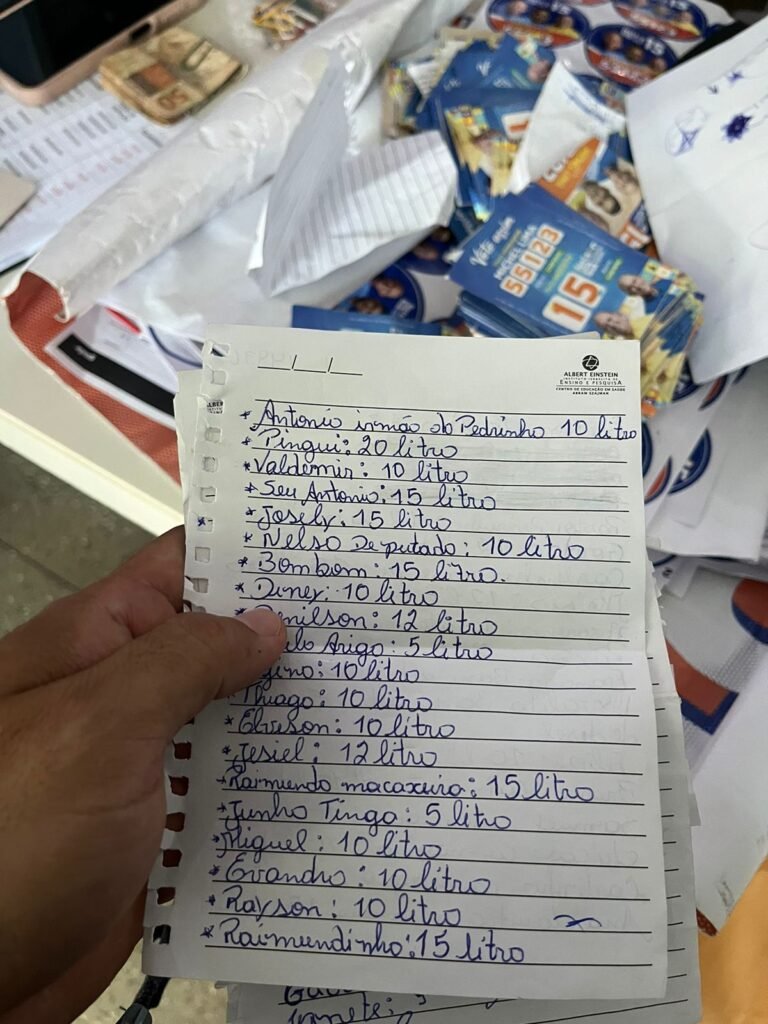 50
15
Vote assim
55123
15
ALBERT EINSTEIN
INSTITUTO ISRAELITA DE
ENSINO E PESQUISA
CENTRO DE EDUCAÇÃO EM SAÚDE
ABRAM SZAJMAN
* Antonio irmão do Pedrinho 10 litro
* Pingui: 20 litro
* Valdemir: 10 litro
* Seu Antonio: 15 litro
* Josely: 15 litro
* Nelso Deputado: 10 litro
* Bombom: 15 litro.
* Diney: 10 litro
* Denilson: 12 litro
Arigo: 5 litro
10 litro
Thiago: 10 litro
* 10 litro
* Jesiel: 12 litro
* Raimundo macaxeira: 15 litro
* Junho Tinga: 5 litro
* Miguel: 10 litro
* Evandro: 10 litro
* Rayson: 10 litro
* Raimundinho: 15 litro